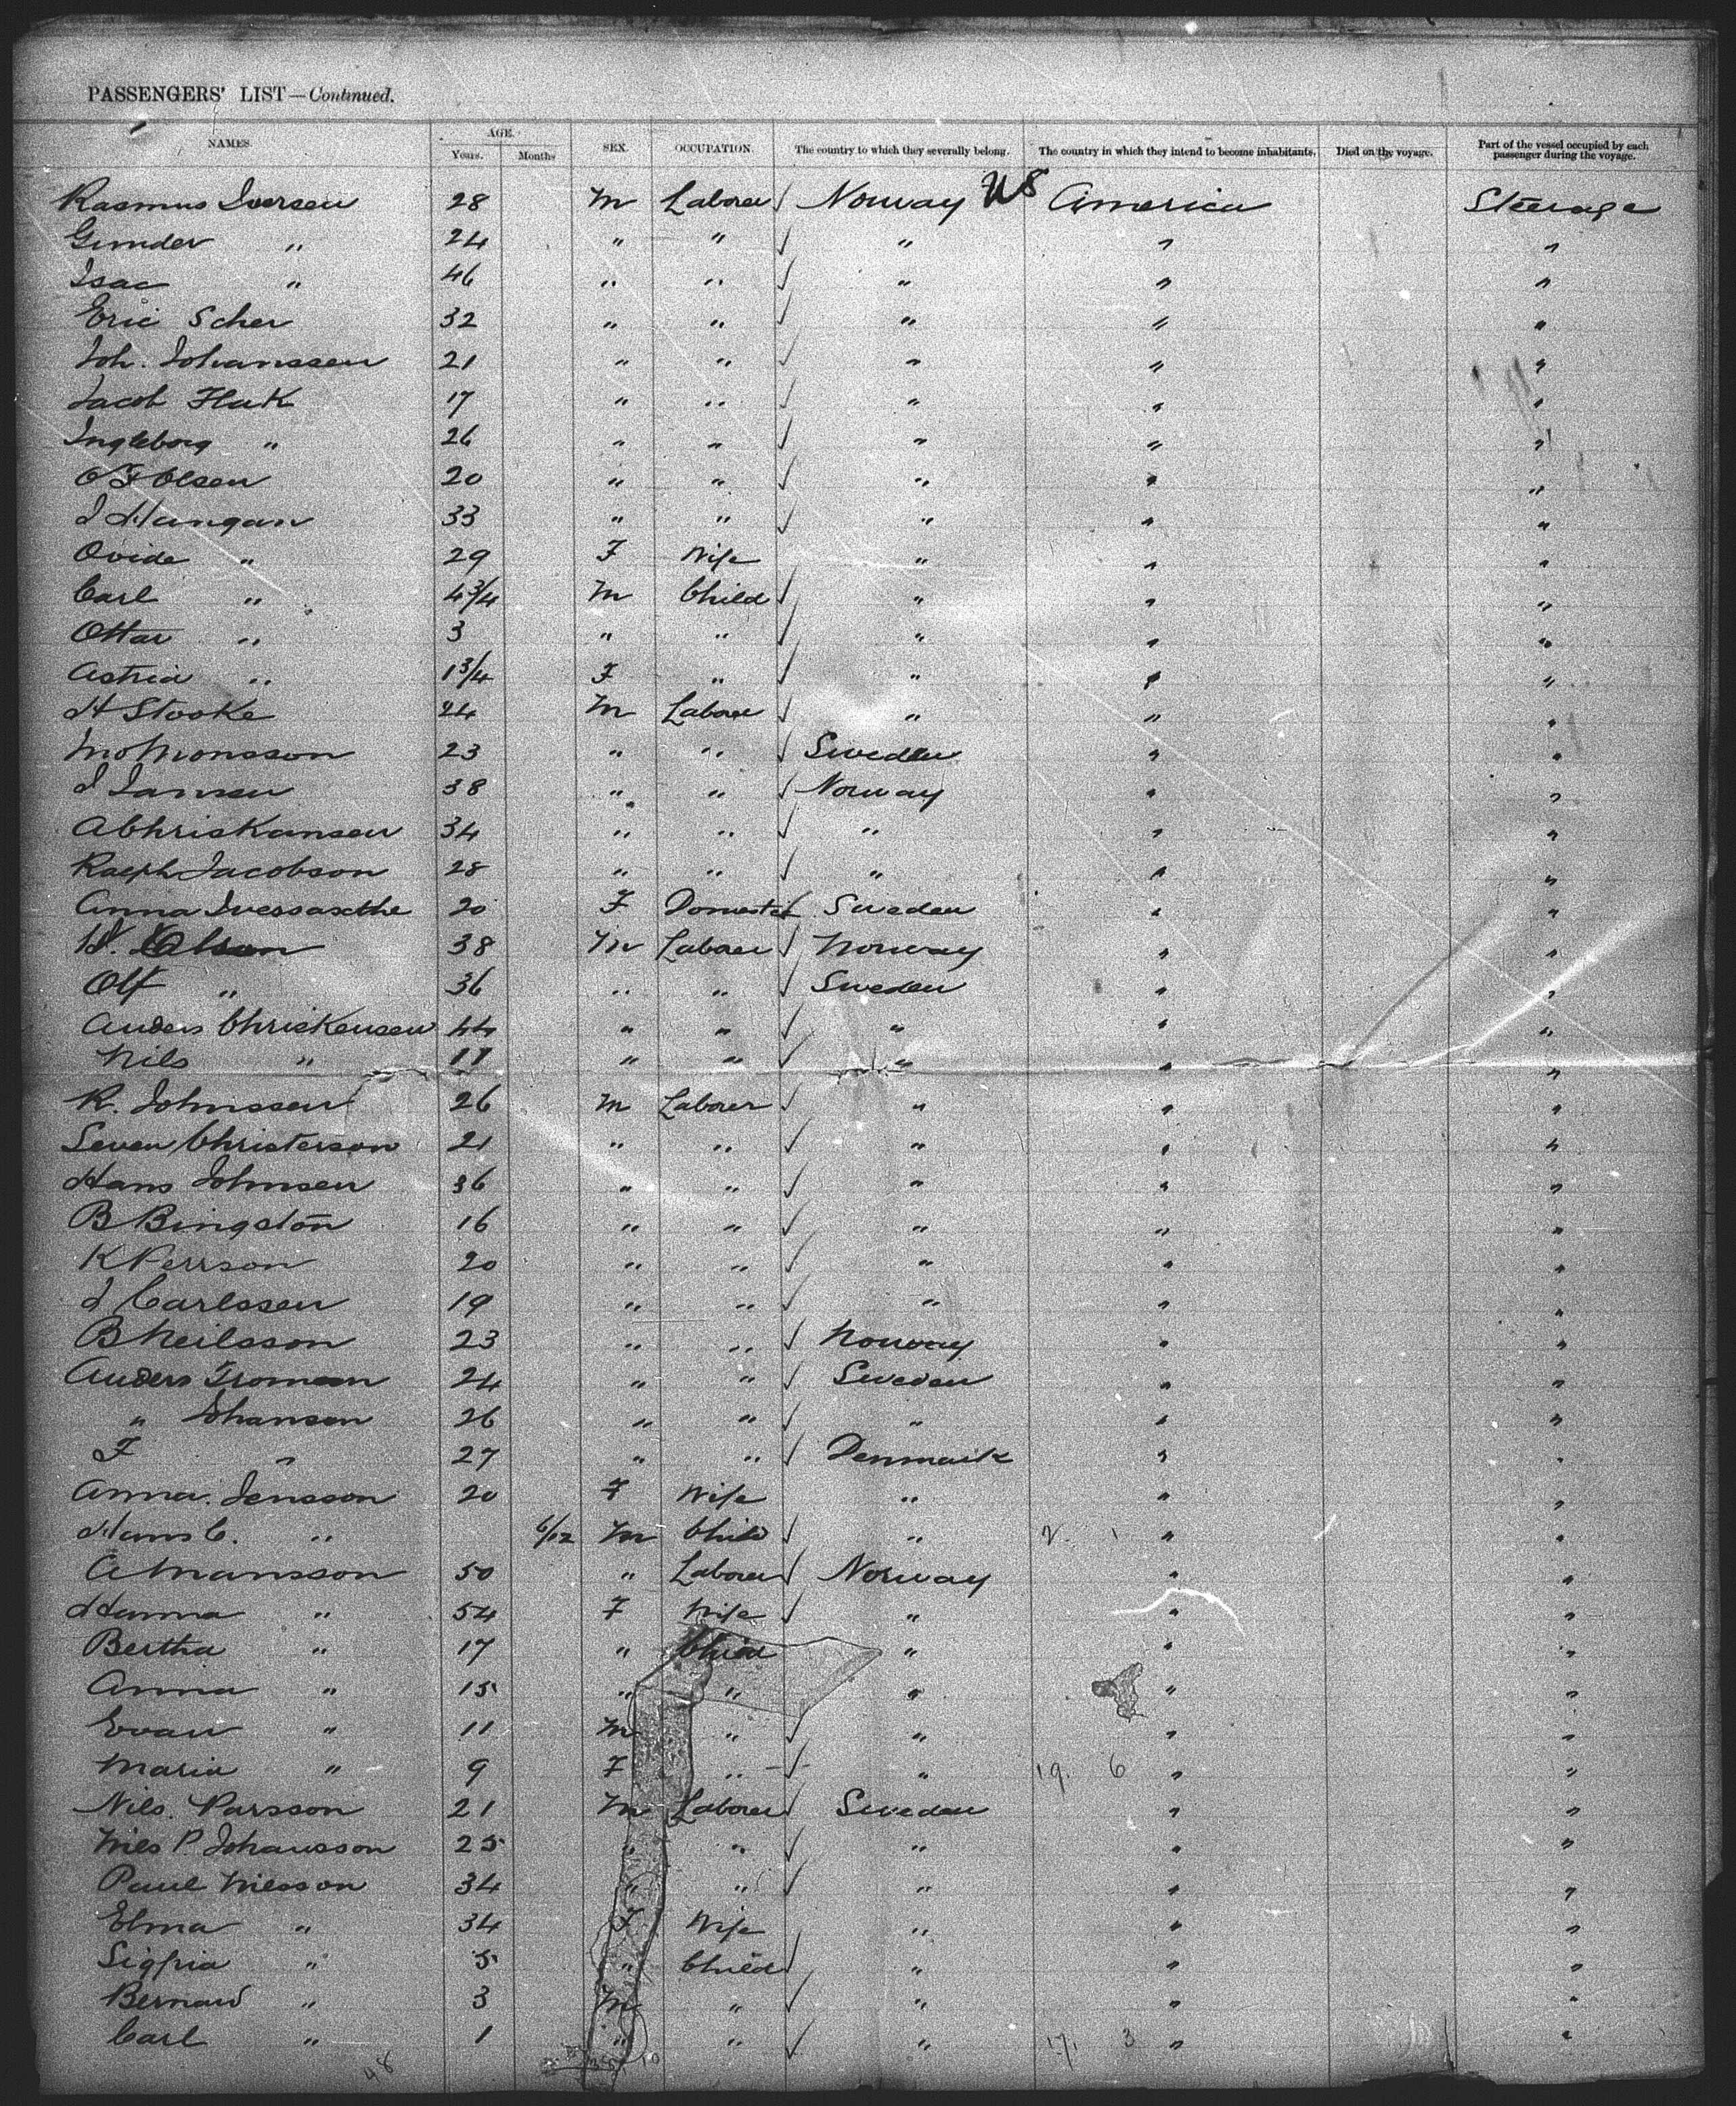 PASSENGERS' LIST—Continued.
NAMES. AGE. Years. Months SEX. OCCUPATION. The country to which they severally belong. The country in which they intend to become inhabitants. Died on the voyage. Part of the vessel occupied by each passenger during the voyage.
Rasmus Iversen 28 M Laborer Norway US America Steerage
Gunder " 24 " " " " "
Isac " 46 " " " " "
Eric Scher 32 " " " " "
Joh. Johanssen 21 " " " " "
Jacob Flak 17 " " " " "
Ingleborg " 26 " " " " "
O F Olsen 20 " " " " "
I Haugan 33 " " " " "
Ovide " 29 F Wife " " "
Carl " 4 3/4 M Child " " "
Ottar " 3 " " " " "
Astria " 1 3/4 F " " " "
H Stooke 24 M Laborer " " "
Monsson 23 " " Sweden " "
J Jansen 38 " " Norway " "
A Chriskansen 34 " " " " "
Ralph Jacobson 28 " " " " "
Anna 20 F Domestic Sweden " "
Olsen 38 M Laborer Norway " "
Olf " 36 " " Sweden " "
Anders Chriskensen 44 " " " " "
Nils " 17 " " " " "
R. Johnssen 26 M Laborer " " "
Seven Christerson 21 " " " " "
Hans Johnsen 36 " " " " "
B Bingston 16 " " " " "
K Persson 20 " " " " "
J Carlssen 19 " " " " "
B Neilsson 23 " " Norway " "
Anders Troman 24 " " Sweden " "
" Johanson 26 " " " " "
F " 27 " " Denmark " "
Anna Jensson 20 F Wife " " "
Hans C. " 6/12 M Child " 2. 1 " "
A Mansson 50 " Laborer Norway " "
Hanna " 54 F Wife " " "
Bertha " 17 " Child " " "
Anna " 15 " " " " "
Evan " 11 M " " " "
Maria " 9 F " " 19. 6 " "
Nils. Parsson 21 M Laborer Sweden " "
Nils P. Johansson 25 " " " " "
Paul Nilsson 34 " " " " "
Elma " 34 F Wife " " "
Sigfria " 5 " Child " " "
Bernard " 3 M " " " "
Carl " 1 " " " 17. 3 " "
48